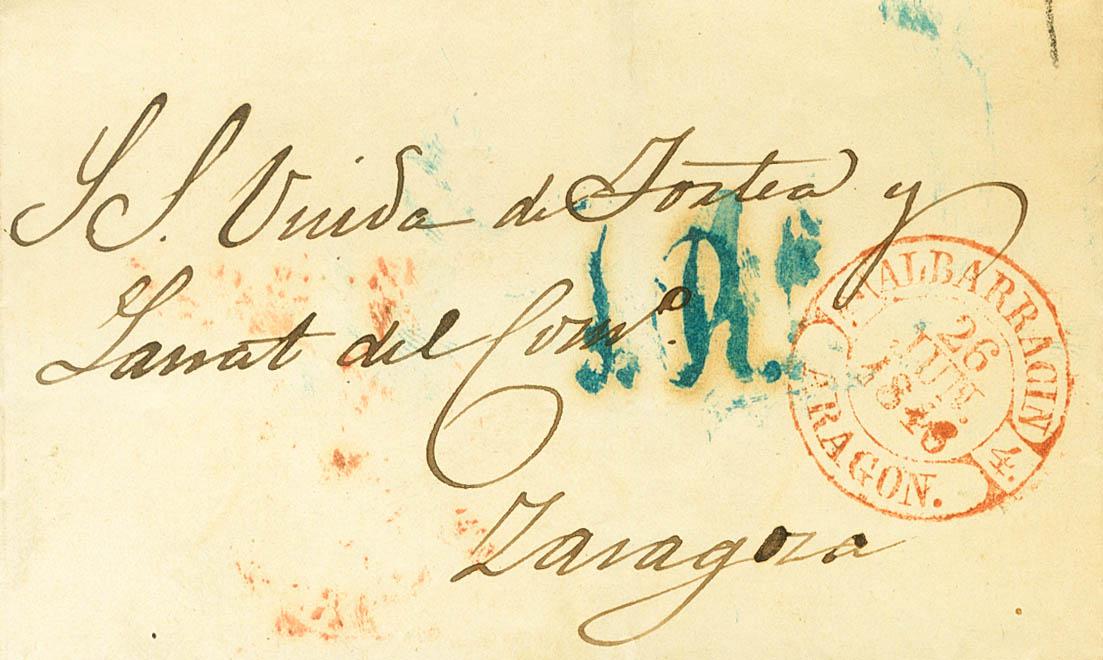 S S. Viuda de Fortea y
Larrat del Com.º
Zaragoza
1 R.
ALBARRACIN 4.
26
JUN
ARAGON.